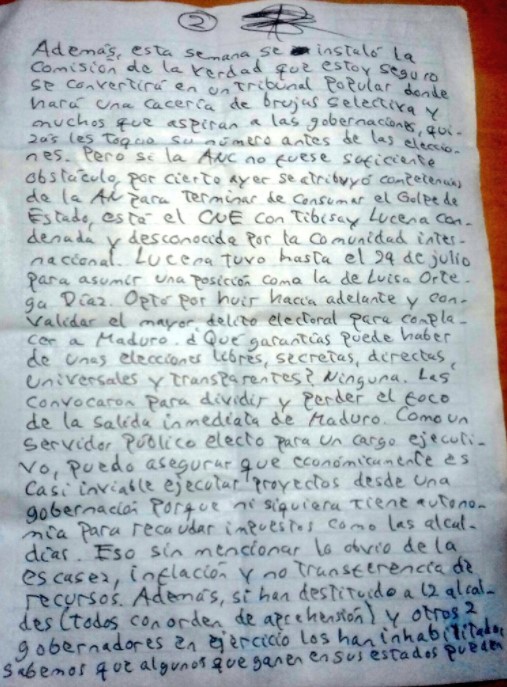 2
Además, esta semana se instaló la
Comisión de la verdad que estoy seguro
se convertirá en un tribunal Popular donde
hará una cacería de brujas selectiva y
muchos que aspiran a las gobernaciones, qui-
zás les toque su número antes de las eleccio-
nes. Pero si la ANC no fuese suficiente
obstáculo, por cierto ayer se atribuyó competencias
de la AN para terminar de consumar el Golpe de
Estado, está el CNE con Tibisay Lucena con-
denada y desconocida por la comunidad inter-
nacional. Lucena tuvo hasta el 29 de julio
para asumir una posición como la de Luisa Orte-
ga Díaz. Optó por huir hacia adelante y con-
validar el mayor delito electoral para compla-
cer a Maduro. ¿Que garantías puede haber
de unas elecciones libres, secretas, directas,
universales y transparentes? Ninguna. Las
convocaron para dividir y perder el foco
de la salida inmediata de Maduro. Como un
servidor público electo para un cargo ejecuti-
vo, puedo asegurar que económicamente es
casi inviable ejecutar proyectos desde una
gobernación porque ni siquiera tiene autono-
mía para recaudar impuestos como las alcal-
días. Eso sin mencionar lo obvio de la
escasez, inflación y no transferencia de
recursos. Además, si han destituido a 12 alcal-
des (todos con orden de aprehensión) y otros 2
gobernadores en ejercicio los han inhabilitados
sabemos que algunos que ganen en sus estados pueden